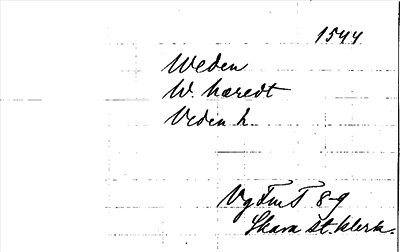 1544
Weden
W. hæredt
Veden h.
VgFmT 8-9
Skara st. klerk.